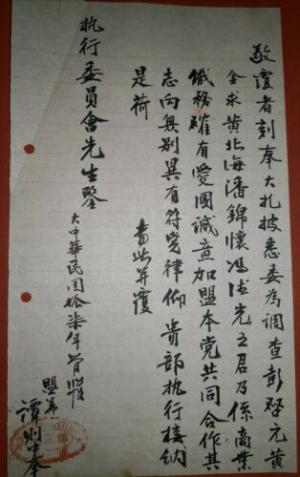 敬覆者刻奉大札披悉委為調查彭啓元黄
金求黄北海潘錦懷馮法先之君乃係商業
職務確有愛國誠意加盟本党共同合作其
志向無別異有符党律仰 貴部執行接納
是荷
耑此并覆
执行委員會先生鑒
大中華民國拾柒年 月 覆
盟弟
譚